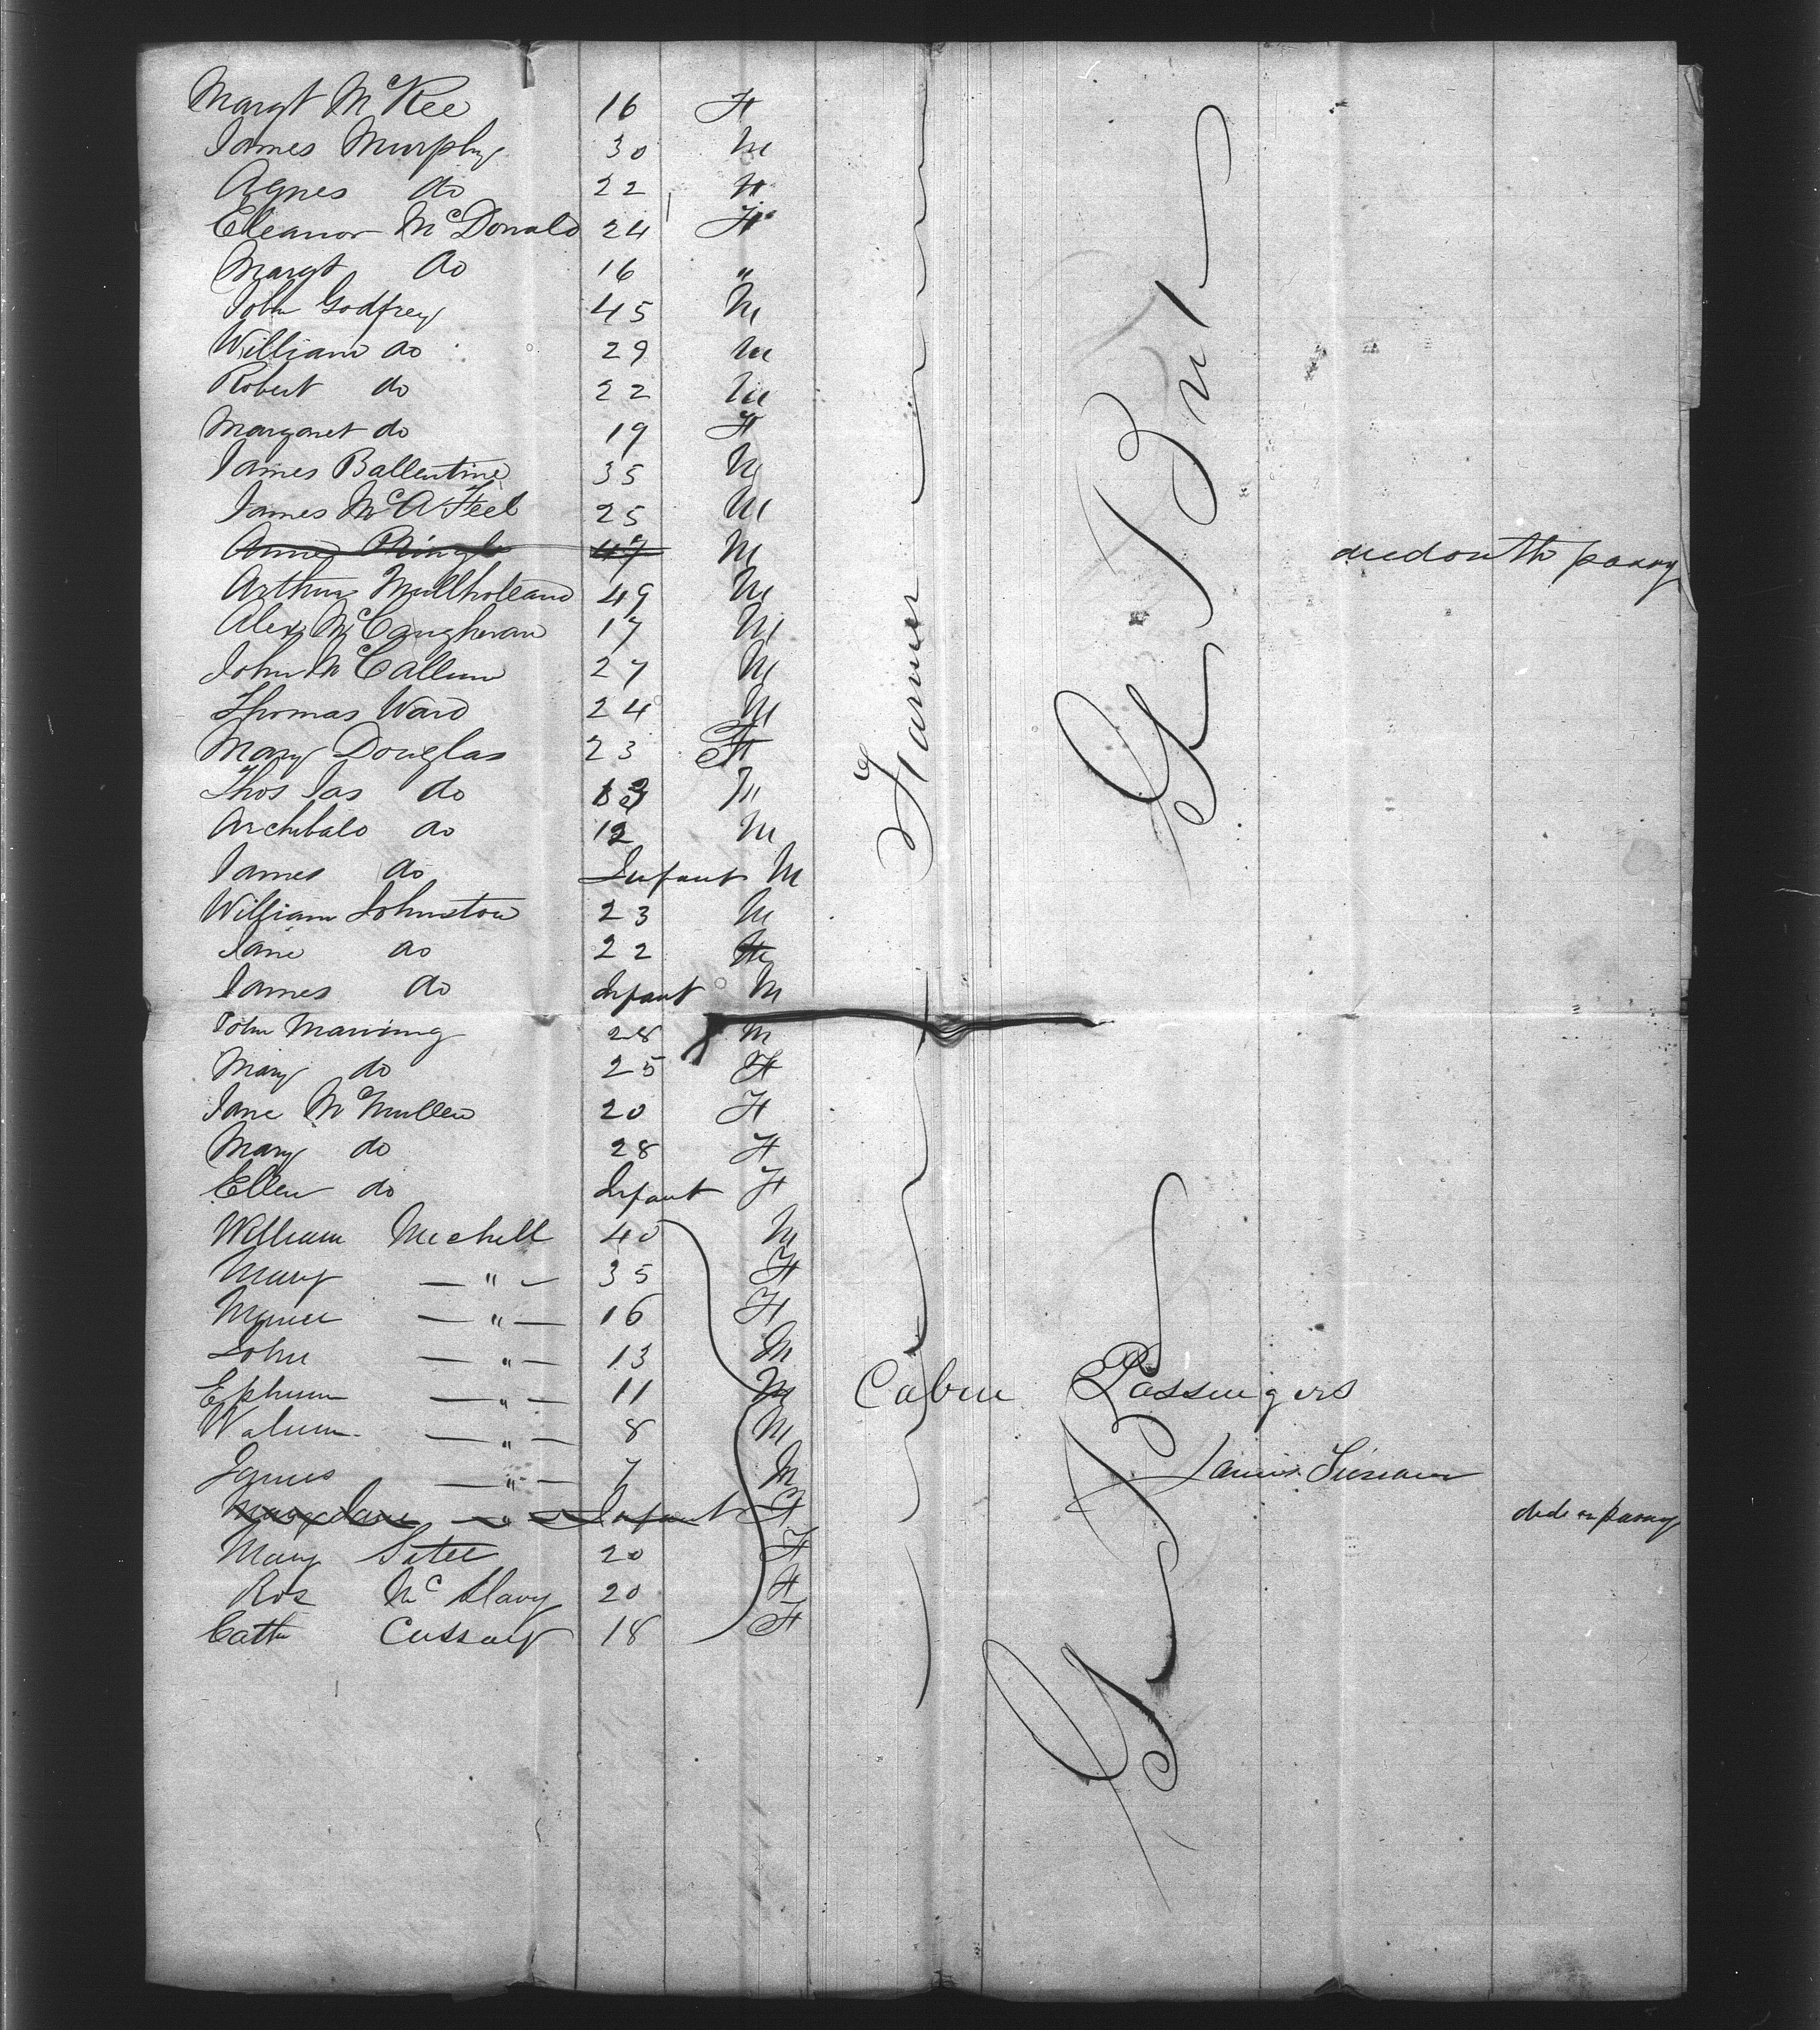 Margt McKee 16 F
James Murphy 30 M
Agnes do 22 F
Eleanor McDonald 24 F
Margt do 16 "
John Godfrey 45 M
William do 29 M
Robert do 22 M
Margaret do 19 F
James Ballentine 35 M
James McAFeel 25 M
47 M died on th passg
Arthur Mullholland 49 M
Alexr McCaugheran 17 M
John McCallum 27 M
Thomas Ward 24 M
Mary Douglas 23 F
Thos Jas do M
Archibald do 12 M
James do Infant M
William Johnston 23 M
Jane do 22
James do Infant M
John Manning 28 M
Mary do 25 F
Jane McMullen 20 F
Mary do 28 F
Ellen do Infant F
William Mechell 40 M
Mary — " — 35 F
— " — 16 F
John — " — 13 M
— " — 11 M
Cabin Passengers
— " — 8 M
— " — 7 M
Mary Jane — " — Infant F died on passg
Mary 20 F
Ros Mc 20 F
Cath 18 F
Farmer
Gt Brit
Gt